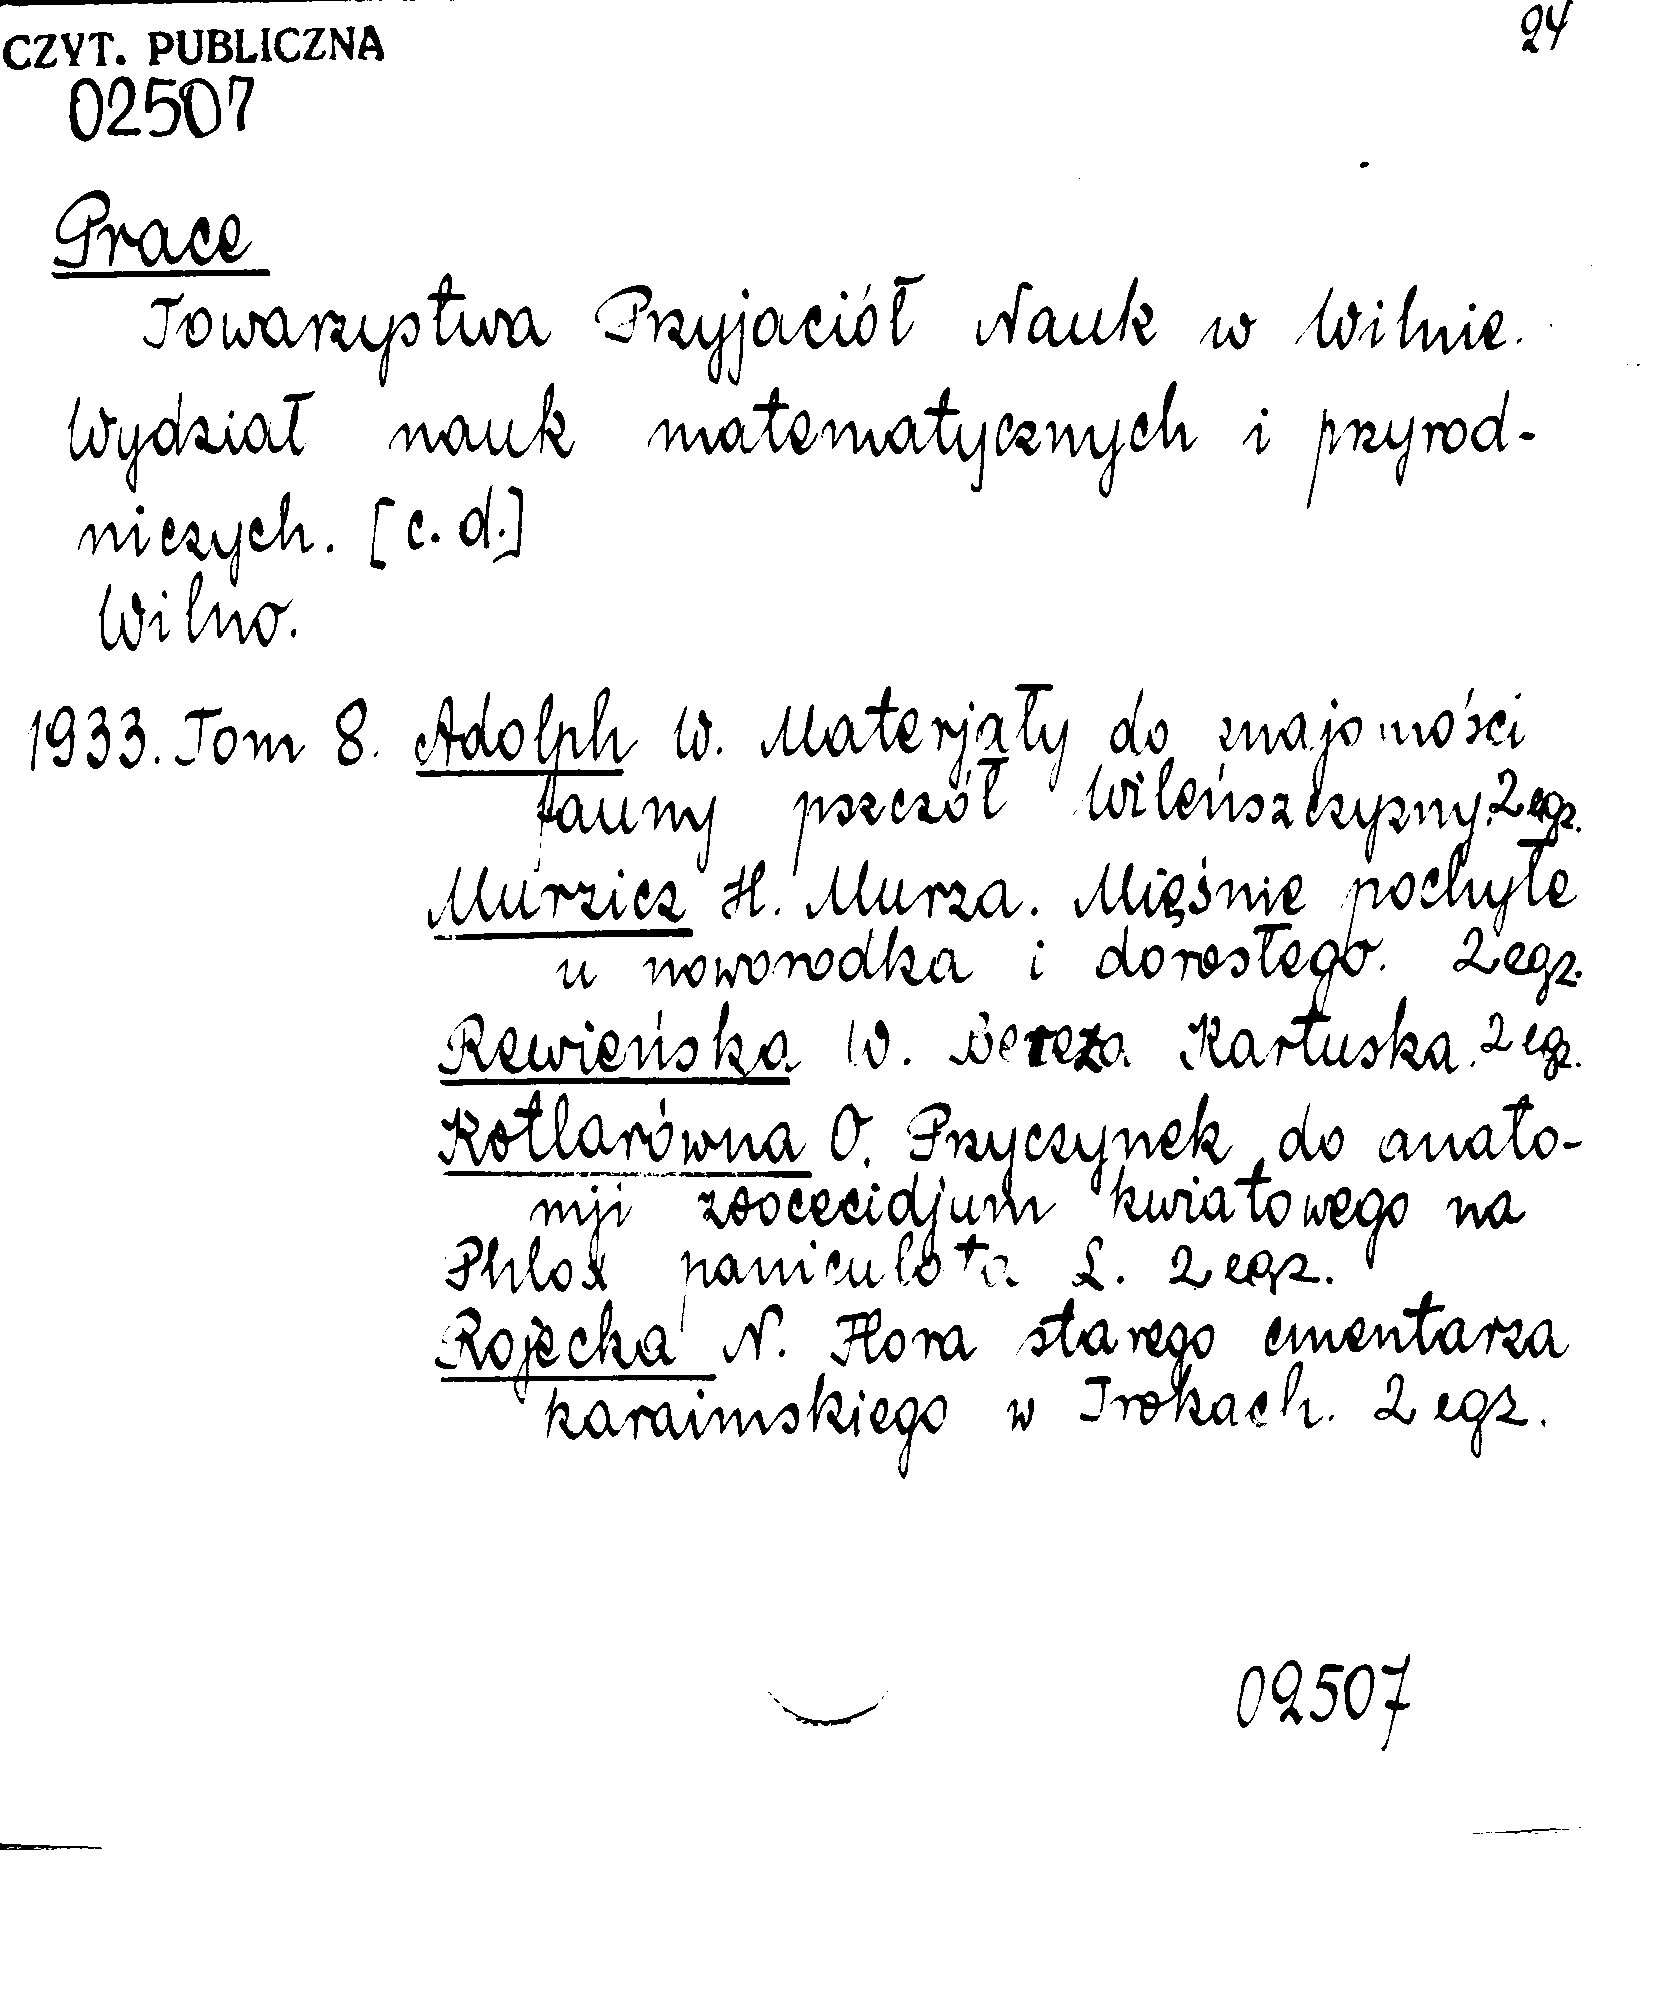 24
CZYT. PUBLICZNA
02507
Prace
Towarzystwa Przyjaciół Nauk w Wilnie.
Wydział nauk matematycznych i przyrod-
niczych. [c. d.]
Wilno.
1933. Tom 8. Adolph W. Materjały do znajomości
fauny pszczół Wileńszczyzny. 2 egz.
Murzicz H. Murza. Mięśnie pochyłe
u noworodka i dorosłego. 2 egz.
Rewieńska W. Bereza Kartuska. 2 egz.
Kotlarówna O. Przyczynek do anato-
mji zoocecidjum kwiatowego na
Phlox paniculata L. 2 egz.
Rojecka N. Flora starego cmentarza
karaimskiego w Trokach. 2 egz.
02507